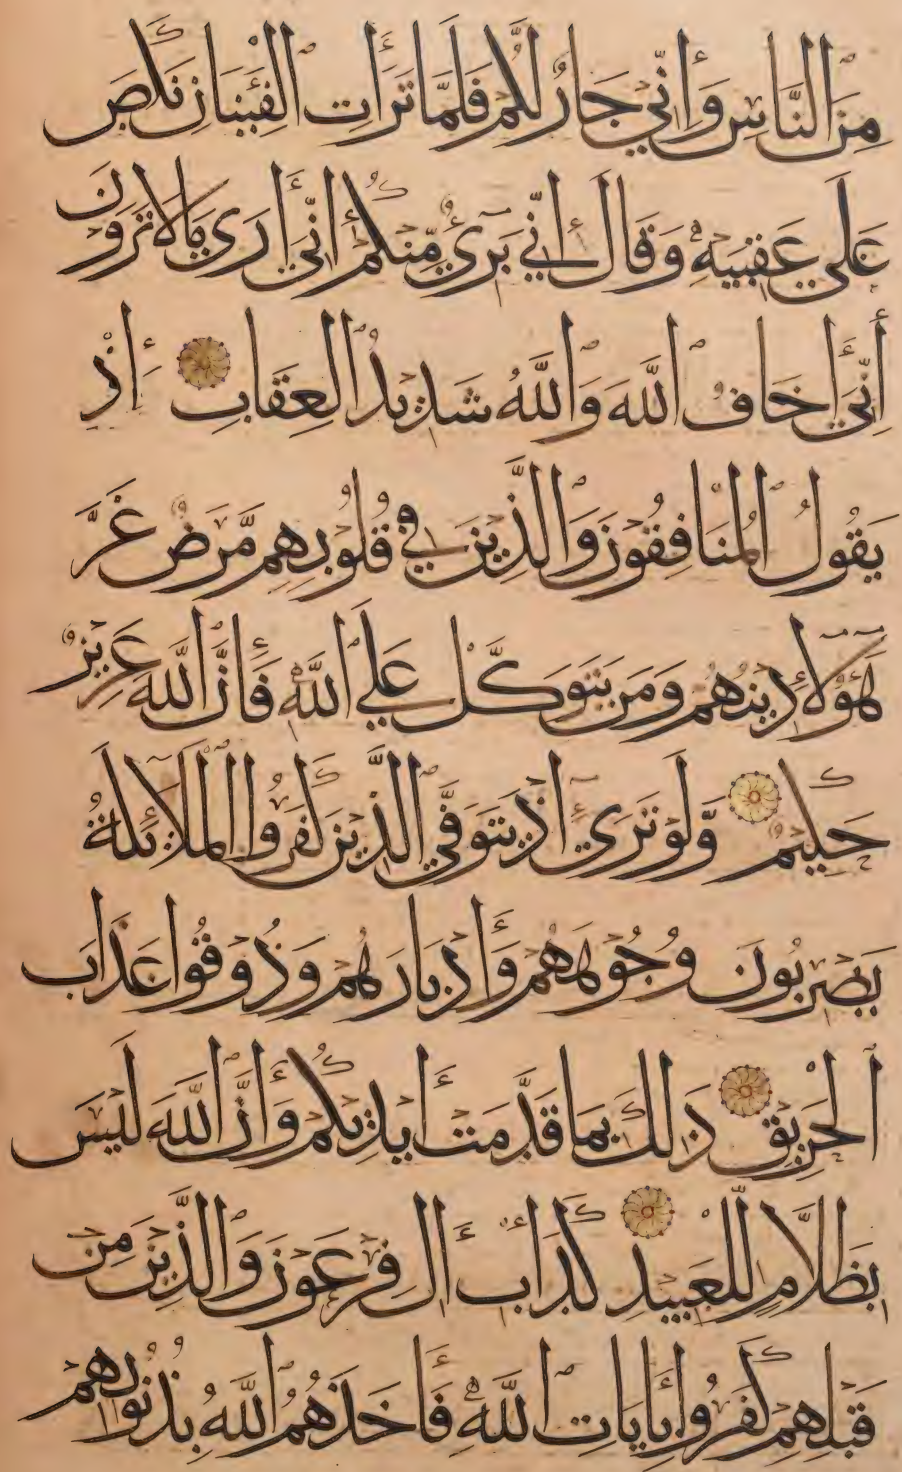 مِنَ النَّاسِ وَأِنِّي جَارٌ لَّكُمْ فَلَمَّا تَرَأَتِ الْفِئَتَانِ نَكَصَ
عَلَى عَقِبَيْهِ وَقَالَ إِنِّي بَرِيٌ مِّنْكُمْ إِنِّي أَرَى مَالَا تَرَوْنَ
إِنِّي أَخَافُ اللَّهَ وَاللَّهُ شَدِيدُ الْعِقَابِ إِذْ
يَقُولُ الْمُنَافِقُونَ وَالَّذِينَ فِي قُلُوبِهِمْ مَّرَضٌ غَرَّ
هَؤُلَاءِ دِينُهُمْ وَمَن يَتَوَكَّلْ عَلَى اللَّهِ فَإِنَّ اللَّهَ عَزِيزٌ
حَكِيمٌ وَّلَوْ تَرَى إِذْ يَتَوَفَّى الَّذِينَ كَفَرُوا الْمَلَائِكَةُ
يَضْرِبُونَ وُجُوهَهُمْ وَأَدْبَارَهُمْ وَذُوقُوا عَذَابَ
الْحَرِيقِ ذَلِكَ بِمَا قَدَّمَتْ أَيْدِيكُمْ وَأَنَّ اللَّهَ لَيْسَ
بِظَلَّامٍ لِّلْعَبِيدِ كَدَأْبِ آلِ فِرْعَوْنَ وَالَّذِينَ مِن
قَبْلِهِمْ كَفَرُوا بِأَيَاتِ اللَّهِ فَأَخَذَهُمُ اللَّهُ بِذُنُوبِهِمْ